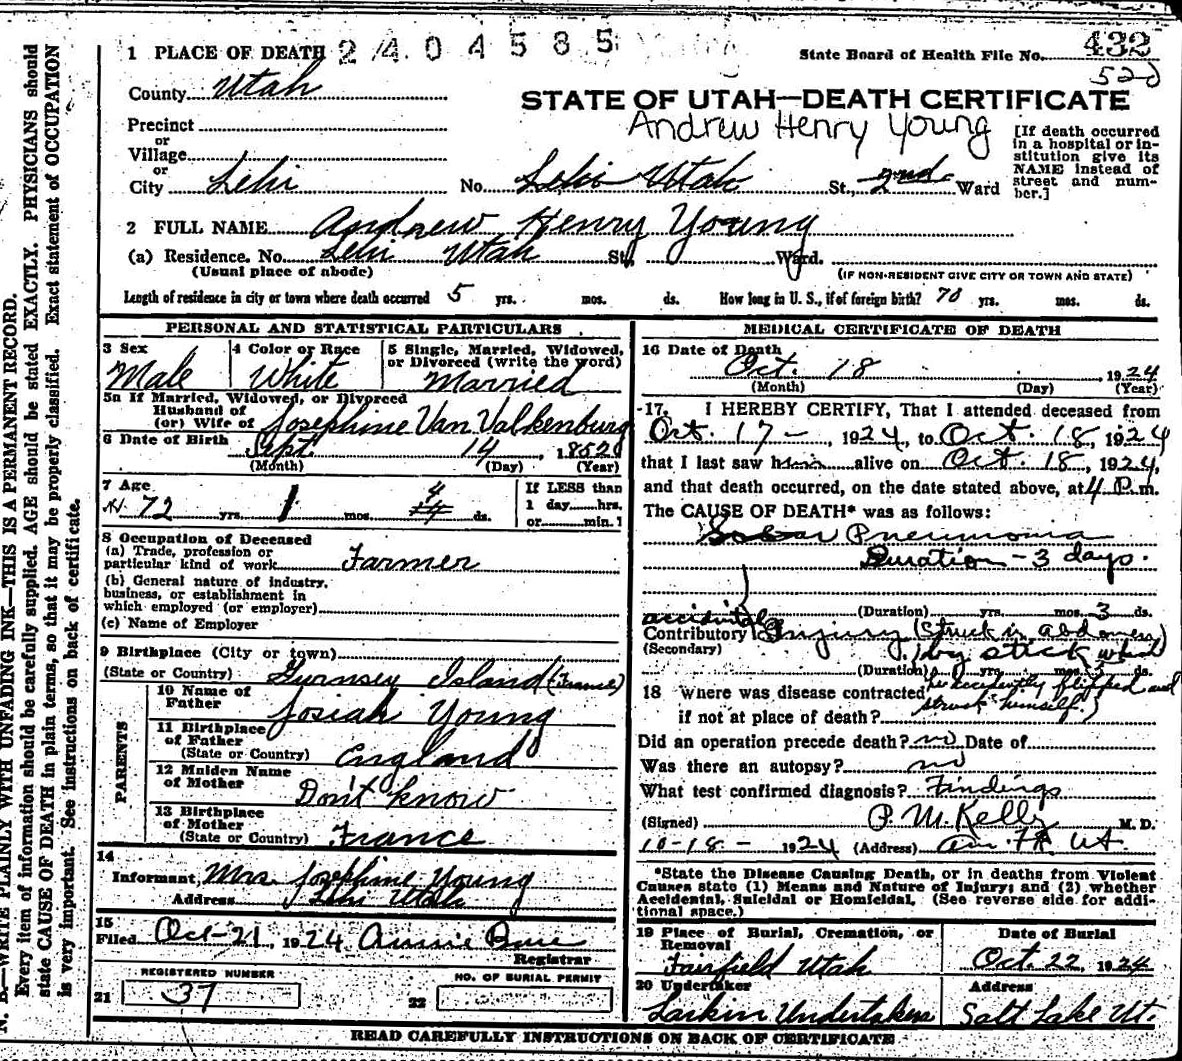 1 PLACE OF DEATH 2404585
State Board of Health File No. 432
52d
County Utah
STATE OF UTAH—DEATH CERTIFICATE
Andrew Henry Young
Precinct
or
Village
or
City Lehi No. Lehi Utah St., 2nd Ward
[If death occurred
in a hospital or in-
stitution give its
NAME instead of
street and num-
ber.]
2 FULL NAME Andrew Henry Young
(a) Residence. No. Lehi Utah St., Ward.
(Usual place of abode) (IF NON-RESIDENT GIVE CITY OR TOWN AND STATE)
Length of residence in city or town where death occurred 5 yrs. mos. ds. How long in U. S., if of foreign birth? 70 yrs. mos. ds.
PERSONAL AND STATISTICAL PARTICULARS
3 Sex 4 Color or Race 5 Single, Married, Widowed,
or Divorced (write the word)
Male White Married
5a If Married, Widowed, or Divorced
Husband of
(or) Wife of Josephine Van Valkenburg
6 Date of Birth Sept. 14, 1852
(Month) (Day) (Year)
7 Age If LESS than
72 yrs. 1 mos. 4 ds. 1 day hrs.
or min.
8 Occupation of Deceased
(a) Trade, profession or
particular kind of work Farmer
(b) General nature of industry,
business, or establishment in
which employed (or employer)
(c) Name of Employer
9 Birthplace (City or town)
(State or Country) Gurnsey Island (France)
PARENTS
10 Name of
Father Josiah Young
11 Birthplace
of Father
(State or Country) England
12 Maiden Name
of Mother Don't know
13 Birthplace
of Mother
(State or Country) France
14
Informant, Mrs. Josephine Young
Address Lehi Utah
15
Filed Oct-21, 1924
Registrar
REGISTERED NUMBER NO. OF BURIAL PERMIT
21 37 22
MEDICAL CERTIFICATE OF DEATH
16 Date of Death
Oct. 18 1924
(Month) (Day) (Year)
17. I HEREBY CERTIFY, That I attended deceased from
Oct. 17-, 1924, to Oct. 18, 1924
that I last saw him alive on Oct. 18, 1924,
and that death occurred, on the date stated above, at 4 P.m.
The CAUSE OF DEATH* was as follows:
Lobar Pneumonia
Duration - 3 days.
(Duration) yrs. mos. 3 ds.
accidental
Contributory Injury (Struck in abdomen
(Secondary) by stick which
(Duration) ds.
he accidently flipped and
18 Where was disease contracted struck himself)
if not at place of death?
Did an operation precede death? no Date of
Was there an autopsy? no
What test confirmed diagnosis? Findings
(Signed) P. M. Kelly M. D.
10-18- 1924 (Address) Am. Fk Ut.
*State the Disease Causing Death, or in deaths from Violent
Causes state (1) Means and Nature of Injury; and (2) whether
Accidental, Suicidal or Homicidal. (See reverse side for addi-
tional space.)
19 Place of Burial, Cremation, or Date of Burial
Removal
Fairfield Utah Oct. 22, 1924
20 Undertaker Address
Larkin Undertakers Salt Lake Ut.
READ CAREFULLY INSTRUCTIONS ON BACK OF CERTIFICATE
N. B.—WRITE PLAINLY WITH UNFADING INK—THIS IS A PERMANENT RECORD.
Every item of information should be carefully supplied. AGE should be stated EXACTLY. PHYSICIANS should
state CAUSE OF DEATH in plain terms, so that it may be properly classified. Exact statement of OCCUPATION
is very important. See instructions on back of certificate.